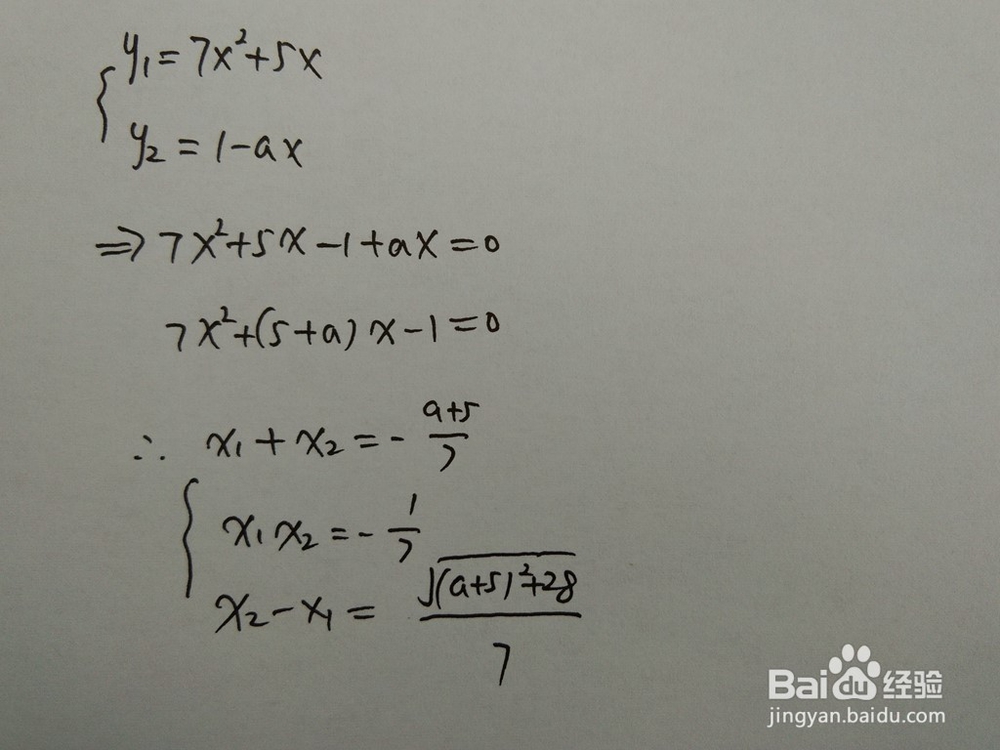 y₁ = 7x²+5x
y₂ = 1-ax
⇒ 7x²+5x-1+ax=0
7x²+(5+a)x-1=0
∴ x₁+x₂=-\frac{a+5}{7}
x₁x₂=-\frac{1}{7}
x₂-x₁=\frac{\sqrt{(a+5)²+28}}{7}
Baidu经验
jingyan.baidu.com